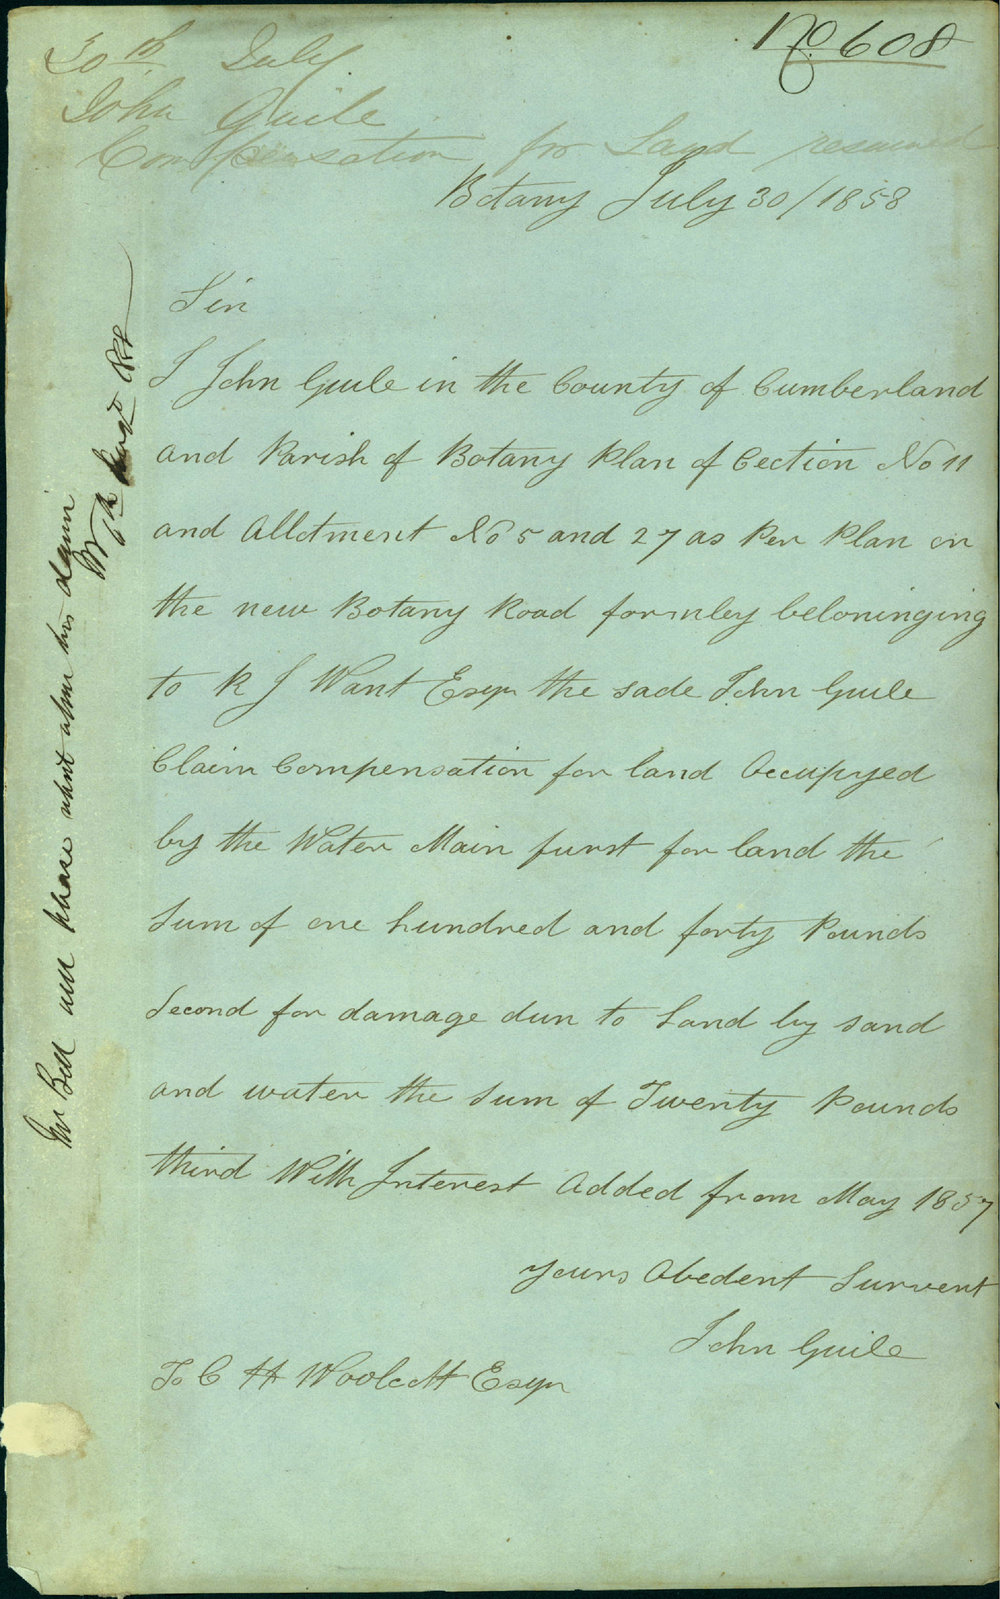 No 608
30th July
John Guile
Compensation for Land resumed
Botany July 30/1858
Sir
I John Guile in the County of Cumberland
and Parish of Botany Plan of Cection No 11
and Allotment No 5 and 27 as Per Plan on
the new Botany Road formley beloninging
to R J Want Esqr the sade John Guile
Claim Compensation for land Occupyed
by the Water Main furst for land the
Sum of one hundred and forty Pounds
Second for damage dun to Land by sand
and water the Sum of Twenty Pounds
third With Interest Added from May 1857
Yours Obedent Survent
John Guile
To C H Woolcott Esqr
Mr Bell will please report upon this claim
6th Augt